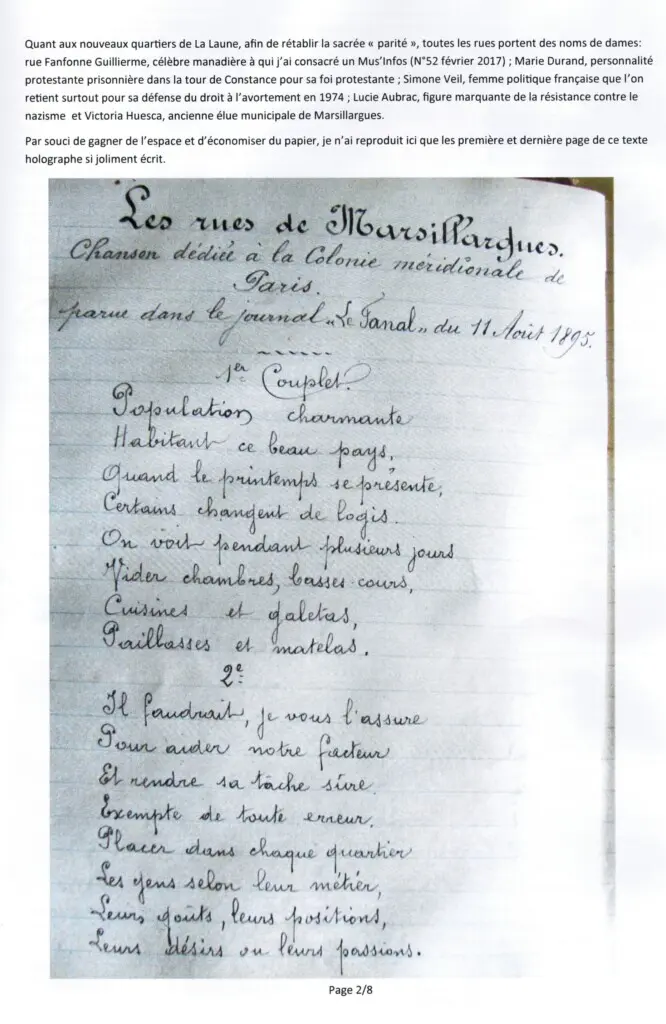 Quant aux nouveaux quartiers de La Laune, afin de rétablir la sacrée « parité », toutes les rues portent des noms de dames:
rue Fanfonne Guillierme, célèbre manadière à qui j'ai consacré un Mus'Infos (N°52 février 2017) ; Marie Durand, personnalité
protestante prisonnière dans la tour de Constance pour sa foi protestante ; Simone Veil, femme politique française que l'on
retient surtout pour sa défense du droit à l'avortement en 1974 ; Lucie Aubrac, figure marquante de la résistance contre le
nazisme et Victoria Huesca, ancienne élue municipale de Marsillargues.
Par souci de gagner de l'espace et d'économiser du papier, je n'ai reproduit ici que les première et dernière page de ce texte
holographe si joliment écrit.
Les rues de Marsillargues.
Chanson dédiée à la Colonie méridionale de
Paris.
parue dans le journal „Le Fanal„ du 11 Août 1895.
1er Couplet.
Population charmante
Habitant ce beau pays,
Quand le printemps se présente,
Certains changent de logis.
On voit pendant plusieurs jours
Vider chambres, basses-cours,
Cuisines et galetas,
Paillasses et matelas.
2e
Il faudrait, je vous l'assure
Pour aider notre facteur
Et rendre sa tâche sûre
Exempte de toute erreur,
Placer dans chaque quartier
Les gens selon leur métier,
Leurs goûts, leurs positions,
Leurs désirs ou leurs passions.
Page 2/8